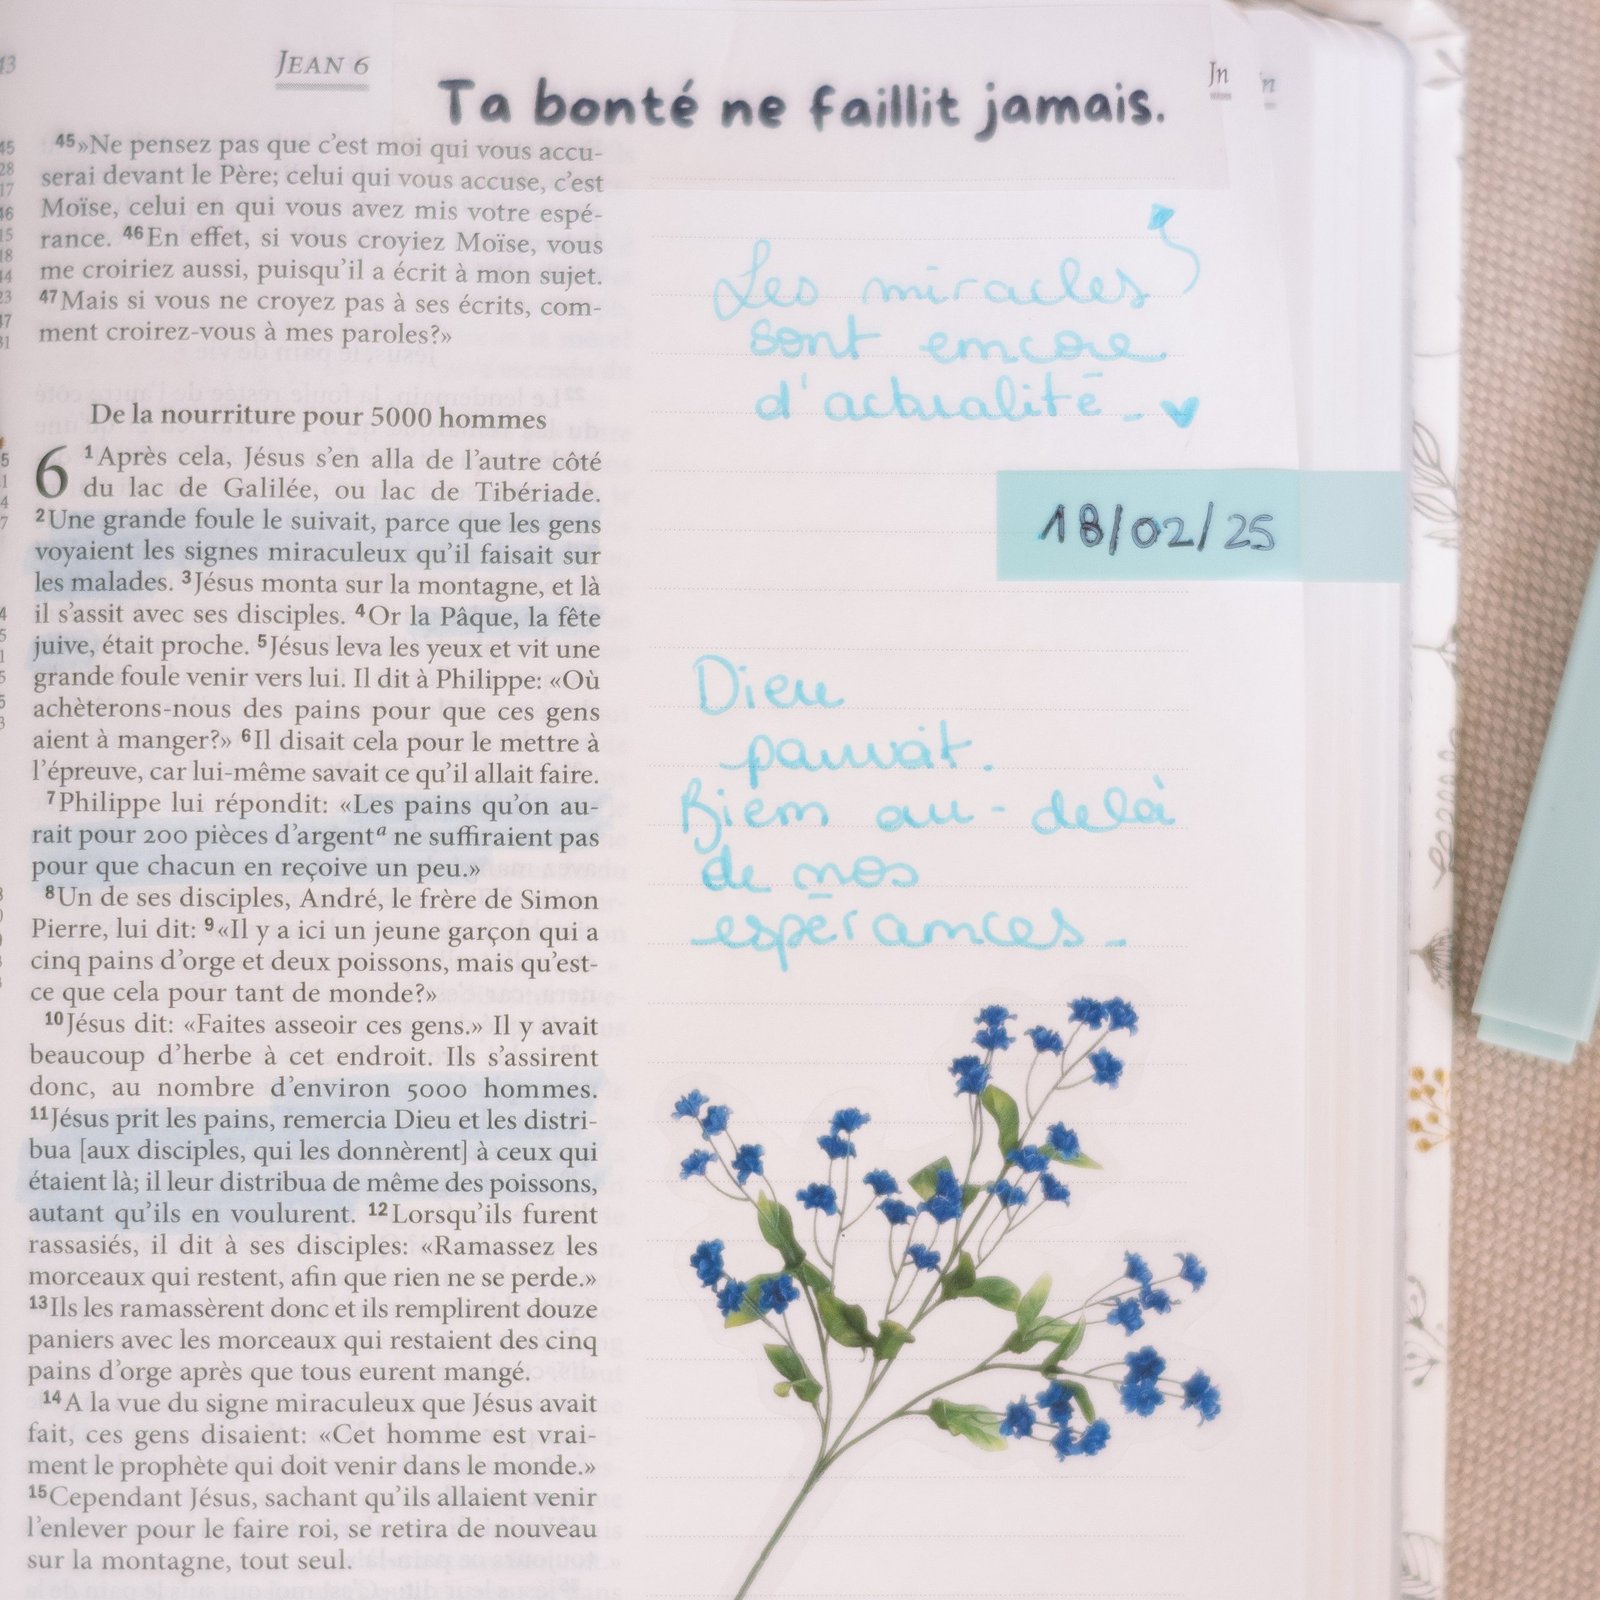 JEAN 6
Ta bonté ne faillit jamais.
Jn
45»Ne pensez pas que c'est moi qui vous accu-
serai devant le Père; celui qui vous accuse, c'est
Moïse, celui en qui vous avez mis votre espé-
rance. 46En effet, si vous croyiez Moïse, vous
me croiriez aussi, puisqu'il a écrit à mon sujet.
47Mais si vous ne croyez pas à ses écrits, com-
ment croirez-vous à mes paroles?»
De la nourriture pour 5000 hommes
6 1Après cela, Jésus s'en alla de l'autre côté
du lac de Galilée, ou lac de Tibériade.
2Une grande foule le suivait, parce que les gens
voyaient les signes miraculeux qu'il faisait sur
les malades. 3Jésus monta sur la montagne, et là
il s'assit avec ses disciples. 4Or la Pâque, la fête
juive, était proche. 5Jésus leva les yeux et vit une
grande foule venir vers lui. Il dit à Philippe: «Où
achèterons-nous des pains pour que ces gens
aient à manger?» 6Il disait cela pour le mettre à
l'épreuve, car lui-même savait ce qu'il allait faire.
7Philippe lui répondit: «Les pains qu'on au-
rait pour 200 pièces d'argentª ne suffiraient pas
pour que chacun en reçoive un peu.»
8Un de ses disciples, André, le frère de Simon
Pierre, lui dit: 9«Il y a ici un jeune garçon qui a
cinq pains d'orge et deux poissons, mais qu'est-
ce que cela pour tant de monde?»
10Jésus dit: «Faites asseoir ces gens.» Il y avait
beaucoup d'herbe à cet endroit. Ils s'assirent
donc, au nombre d'environ 5000 hommes.
11Jésus prit les pains, remercia Dieu et les distri-
bua [aux disciples, qui les donnèrent] à ceux qui
étaient là; il leur distribua de même des poissons,
autant qu'ils en voulurent. 12Lorsqu'ils furent
rassasiés, il dit à ses disciples: «Ramassez les
morceaux qui restent, afin que rien ne se perde.»
13Ils les ramassèrent donc et ils remplirent douze
paniers avec les morceaux qui restaient des cinq
pains d'orge après que tous eurent mangé.
14A la vue du signe miraculeux que Jésus avait
fait, ces gens disaient: «Cet homme est vrai-
ment le prophète qui doit venir dans le monde.»
15Cependant Jésus, sachant qu'ils allaient venir
l'enlever pour le faire roi, se retira de nouveau
sur la montagne, tout seul.
Les miracles
sont encore
d'actualité.
18/02/25
Dieu
pourvoit.
Bien au-delà
de nos
espérances.